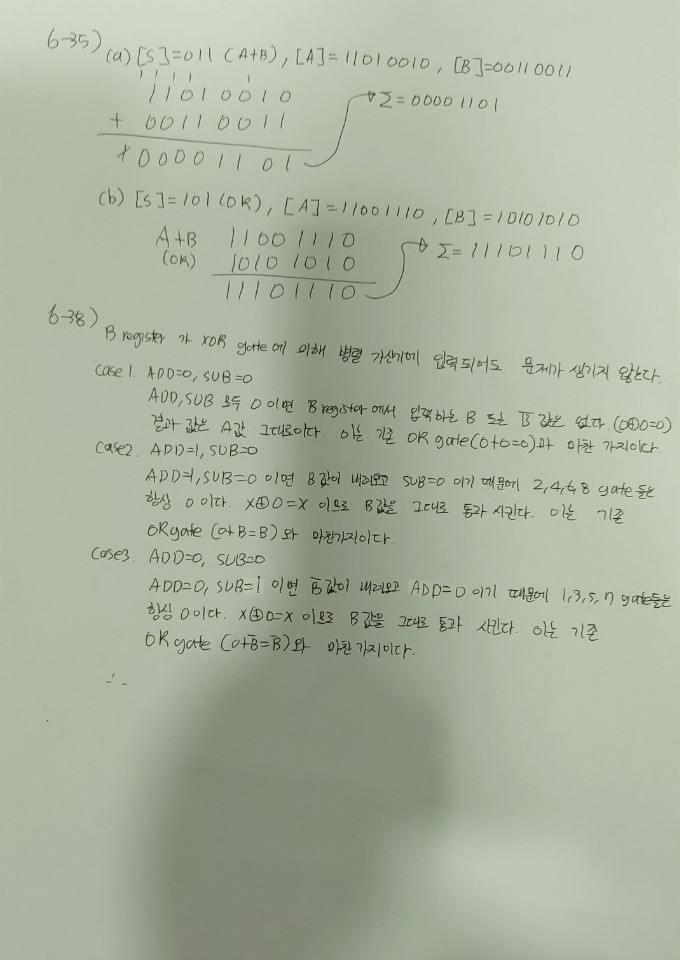 6-35)
(a) [S]=011 (A+B), [A]=11010010, [B]=00110011
1 1 1 1 1
11010010
+ 00110011
100001101
Σ=00001101
(b) [S]=101(OR), [A]=11001110, [B]=10101010
A+B 11001110
(OR) 10101010
11101110
Σ=11101110
6-38)
B register 가 XOR gate에 의해 병렬 가산기에 입력되어도 문제가 생기지 않는다.
Case 1. ADD=0, SUB=0
ADD, SUB 모두 0 이면 B register에서 입력하는 B 또는 B̅ 값은 없다. (0⊕0=0)
결과 값은 A값 그대로이다. 이는 기존 OR gate(0+0=0)과 마찬가지이다.
Case2. ADD=1, SUB=0
ADD=1, SUB=0 이면 B값이 내려오고 SUB=0 이기 때문에 2,4,6,8 gate들은
항상 0이다. X⊕0=X 이므로 B값을 그대로 통과 시킨다. 이는 기존
OR gate (0+B=B)와 마찬가지이다.
Case3. ADD=0, SUB=0
ADD=0, SUB=1 이면 B̅값이 내려오고 ADD=0 이기 때문에 1,3,5,7 gate들은
항상 0이다. X⊕0=X 이므로 B값을 그대로 통과 시킨다. 이는 기존
OR gate (0+B̅=B̅)와 마찬가지이다.
∴